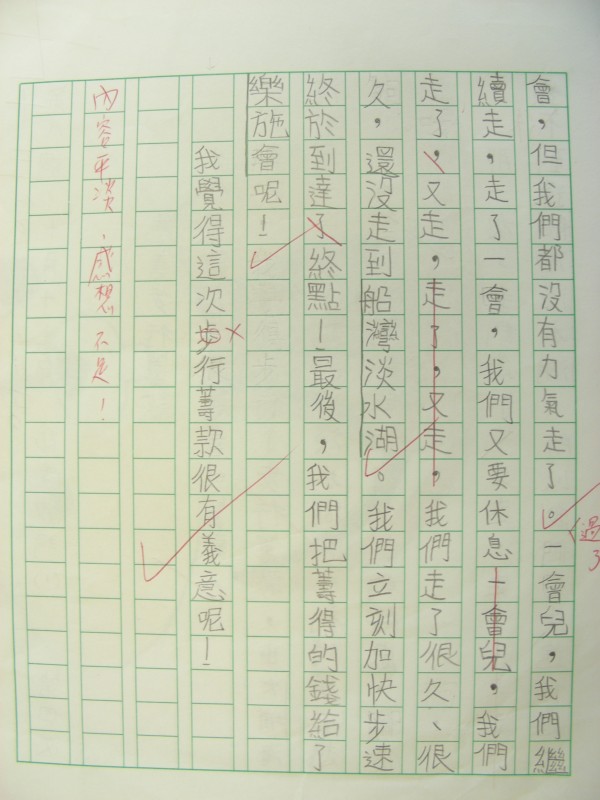 會，但我們都沒有力氣走了。一會兒，我們繼
過了
續走，走了一會，我們又要休息一會兒，我們
走了，又走，走了，又走，我們走了很久、很
久，還沒走到船灣淡水湖。我們立刻加快步速
終於到達了終點！最後，我們把募得的錢給了
樂施會呢！
我覺得這次步行募款很有義意呢！
內容平淡、感想不足！